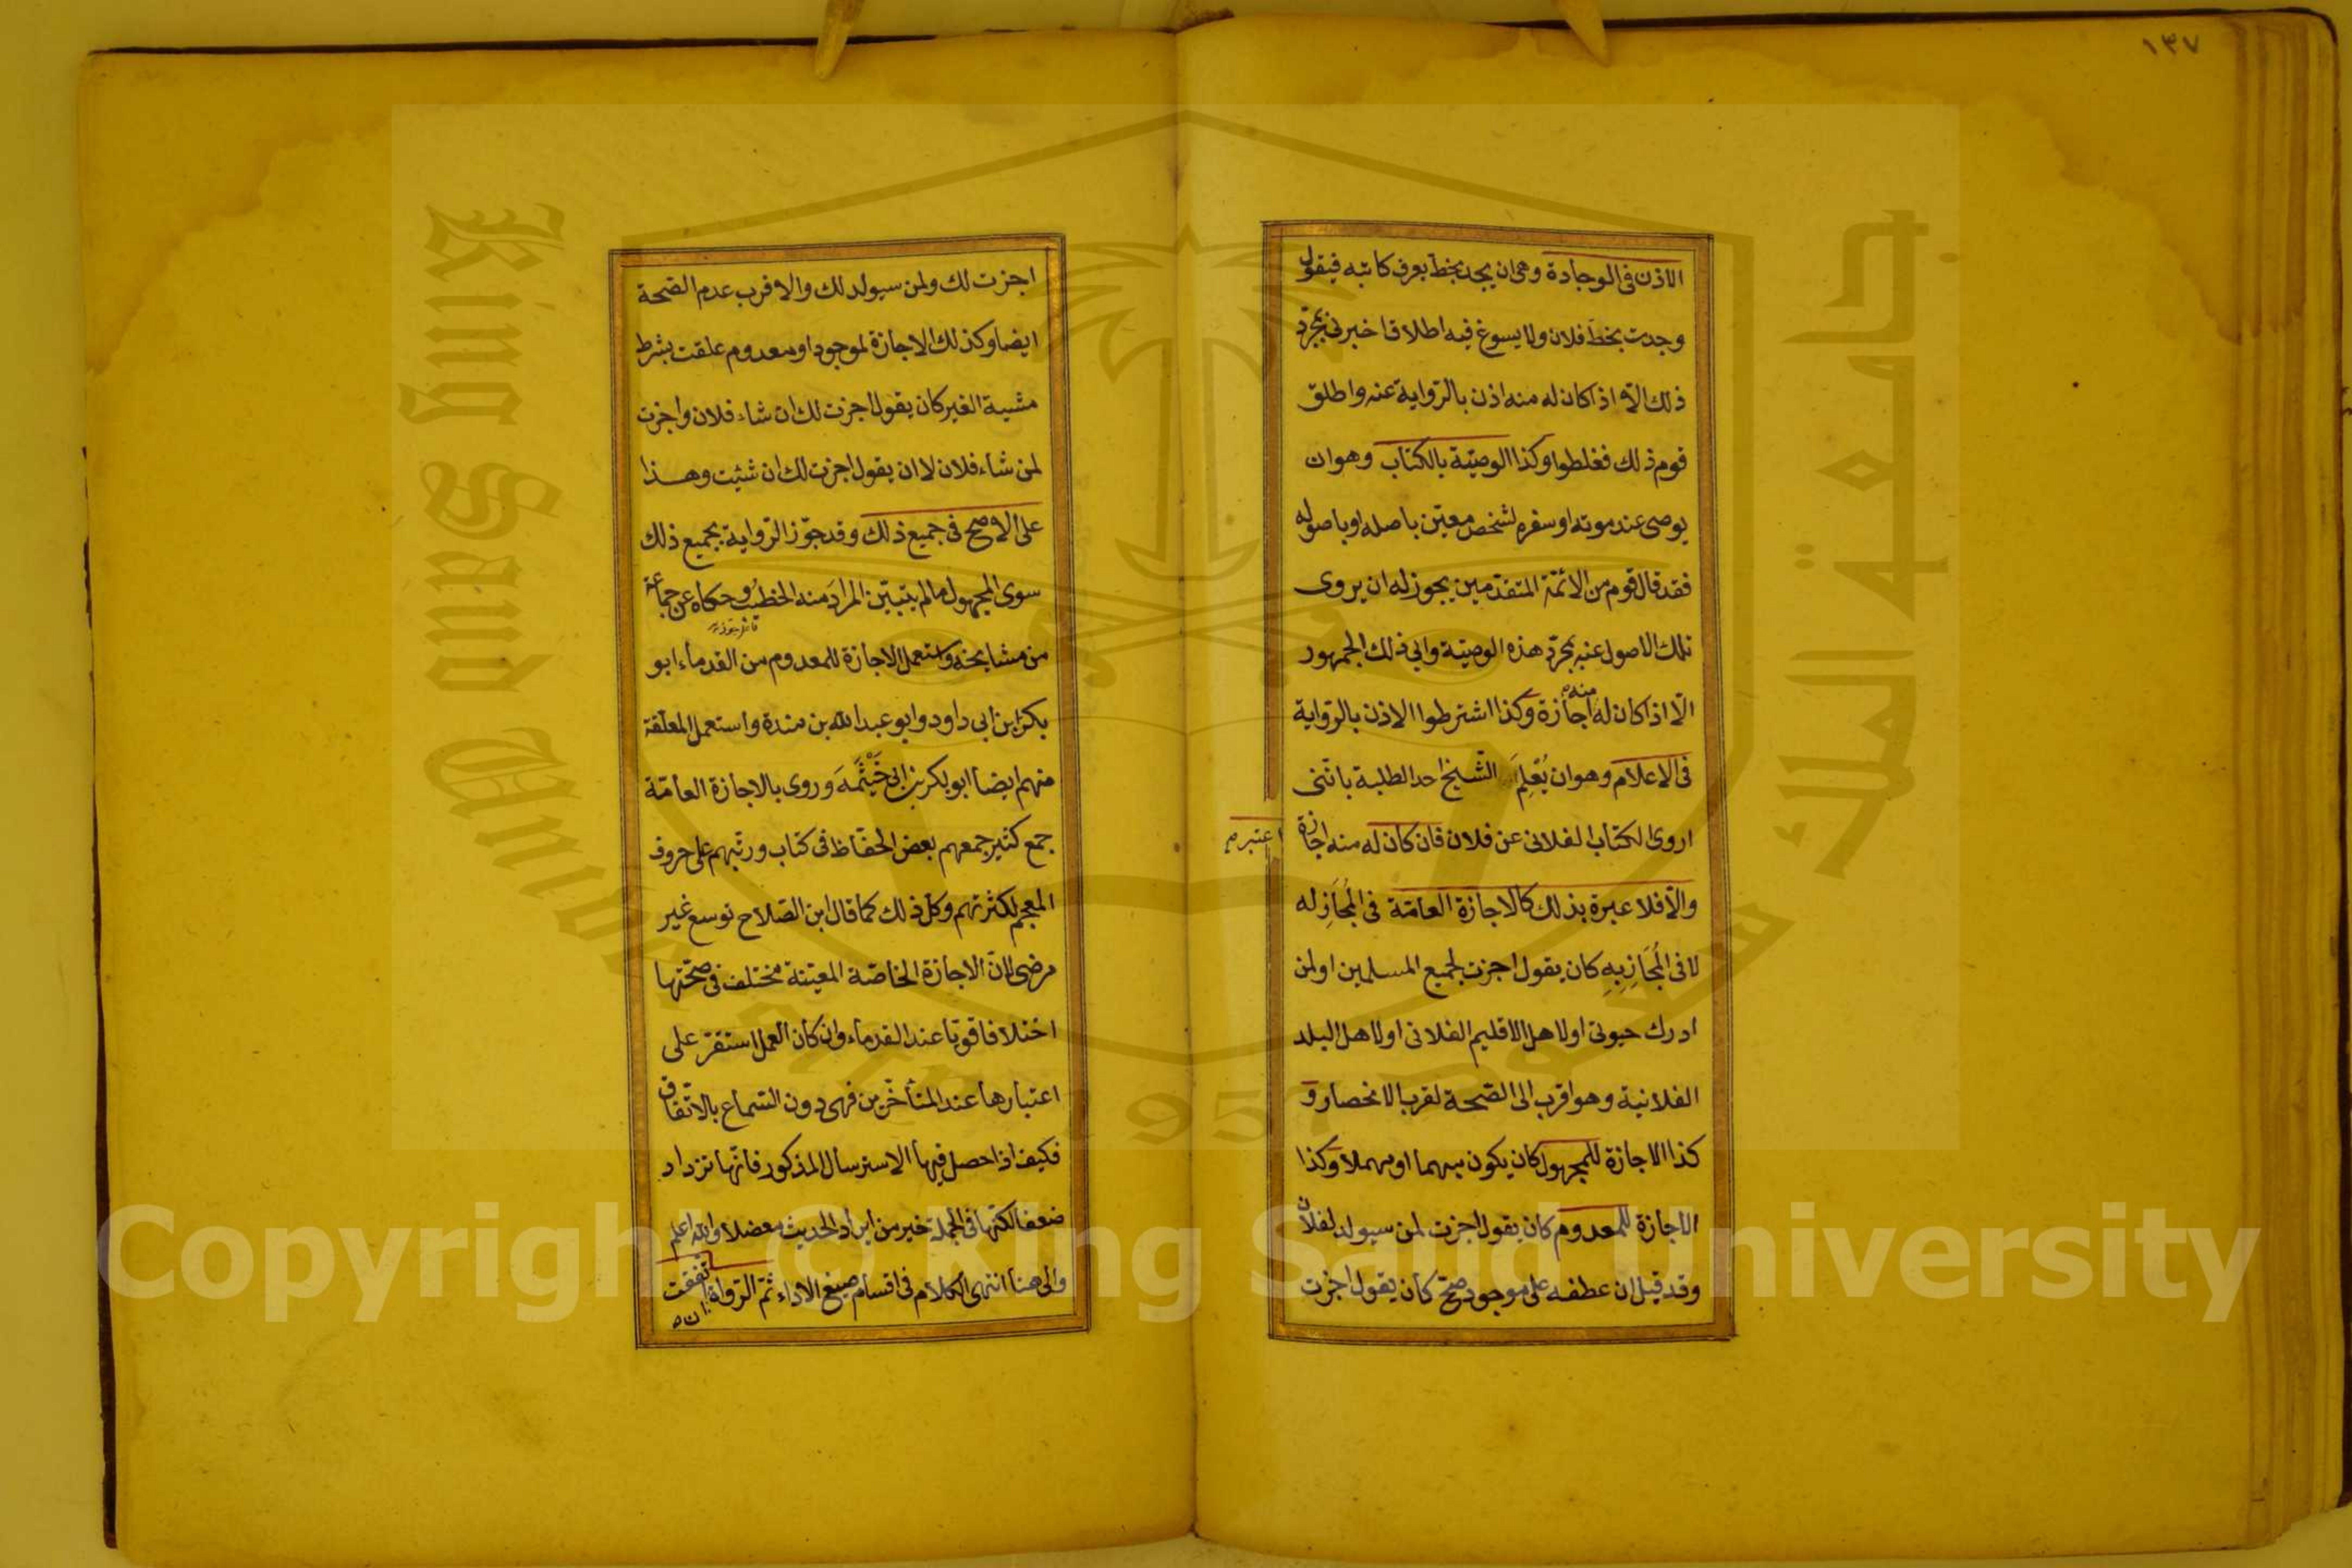 ١٣٧
الاذن فى الوجادة وهى ان يجد بخط يعرف كاتبه فيقول
وجدت بخط فلان ولا يسوغ فيه اطلاق اخبرنى بمجرّد
ذلك الّا اذا كان له منه اذن بالرّواية عنه واطلق
قوم ذلك فغلطوا وكذا الوصيّة بالكتاب وهو ان
يوصى عند موته او سفره لشخص معيّن باصله او باصوله
فقد قال قوم من الائمّة المتقدّمين يجوز له ان يروى
تلك الاصول عنه بمجرّد هذه الوصيّة وابى ذلك الجمهور
الّا اذا كان له منه اجازة وكذا اشترطوا الاذن بالرّواية
فى الاعلام وهو ان يُعْلِمَ الشّيخ احد الطلبة بانّنى
اروى الكتاب الفلانى عن فلان فان كان له منه اجازة
اعتبر
والّا فلا عبرة بذلك كالاجازة العامّة فى المُجَازِ له
لا فى المُجَازِ بِهِ كان يقول اجزت لجميع المسلمين او لمن
ادرك حيوتى او لاهل الاقليم الفلانى او لاهل البلد
الفلانية وهو اقرب الى الصّحة لقرب الانحصار و
كذا الاجازة للمجهول كان يكون مبهما او مهملا وكذا
الاجازة للمعدوم كان يقول اجزت لمن سيولد لفلان
وقد قيل ان عطفه على موجود صحّ كأن يقول اجزت
اجزت لك ولمن سيولد لك والاقرب عدم الصّحة
ايضا وكذلك الاجازة لموجود او معدوم علقت بشرط
مشية الغير كان يقول اجزت لك ان شاء فلان واجزت
لمن شاء فلان لا ان يقول اجزت لك ان شئت وهذا
على الاصح فى جميع ذلك وقد جوّز الرّواية بجميع ذلك
سوى المجهول مالم يتبيّن المرادَ منه الخطيبُ وحكاه عن جماعة
من مشايخه واستعمل الاجازة للمعدوم من القدماء ابو
بكر بن ابى داود وابو عبد الله بن مندة واستعمل المعلّقة
منهم ايضا ابو بكر بن ابى خَيْثَمَهَ وروى بالاجازة العامّة
جمع كثير جمعهم بعض الحفّاظ فى كتاب ورتّبهم على حروف
المعجم لكثرتهم وكلّ ذلك كما قال ابن الصّلاح توسع غير
مرضى لانّ الاجازة الخاصّة المعيّنة مختلف فى صحّتها
اختلافا قويّا عند القدماء وان كان العمل استقرّ على
اعتبارها عند المتأخّرين فهى دون السّماع بالاتّفاق
فكيف اذا حصل فيها الاسترسال المذكور فانّها تزداد
ضعفا لكنّها فى الجملة خير من ايراد الحديث معضلا والله اعلم
والى هنا انتهى الكلام فى اقسام صيغ الاداء ثمّ الرّواة ان اتّفقت
Copyright © King Saud University
King Saud University
جامعة الملك سعود
1957